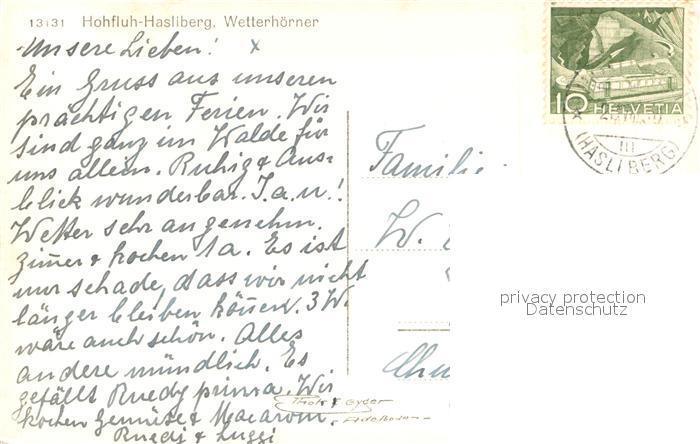 13131 Hohfluh-Hasliberg, Wetterhörner
Unsere Lieben! x
Ein Gruss aus unseren
prächtigen Ferien. Wir
sind ganz im Walde für
uns allein. Ruhig & Aus-
blick wunderbar.
Wetter sehr angenehm.
Zimer & kochen 1a. Es ist
nur schade, dass wir nicht
länger bleiben können. 3 W.
wäre auch schön. Alles
andere mündlich. Es
gefällt Ruedy prima. Wir
kochen Gemüse & Macaroni.
Ruedi & Luggi
Photo Gyger
Adelboden
Familie
W.
10 HELVETIA
III
(HASLIBERG)
privacy protection
Datenschutz